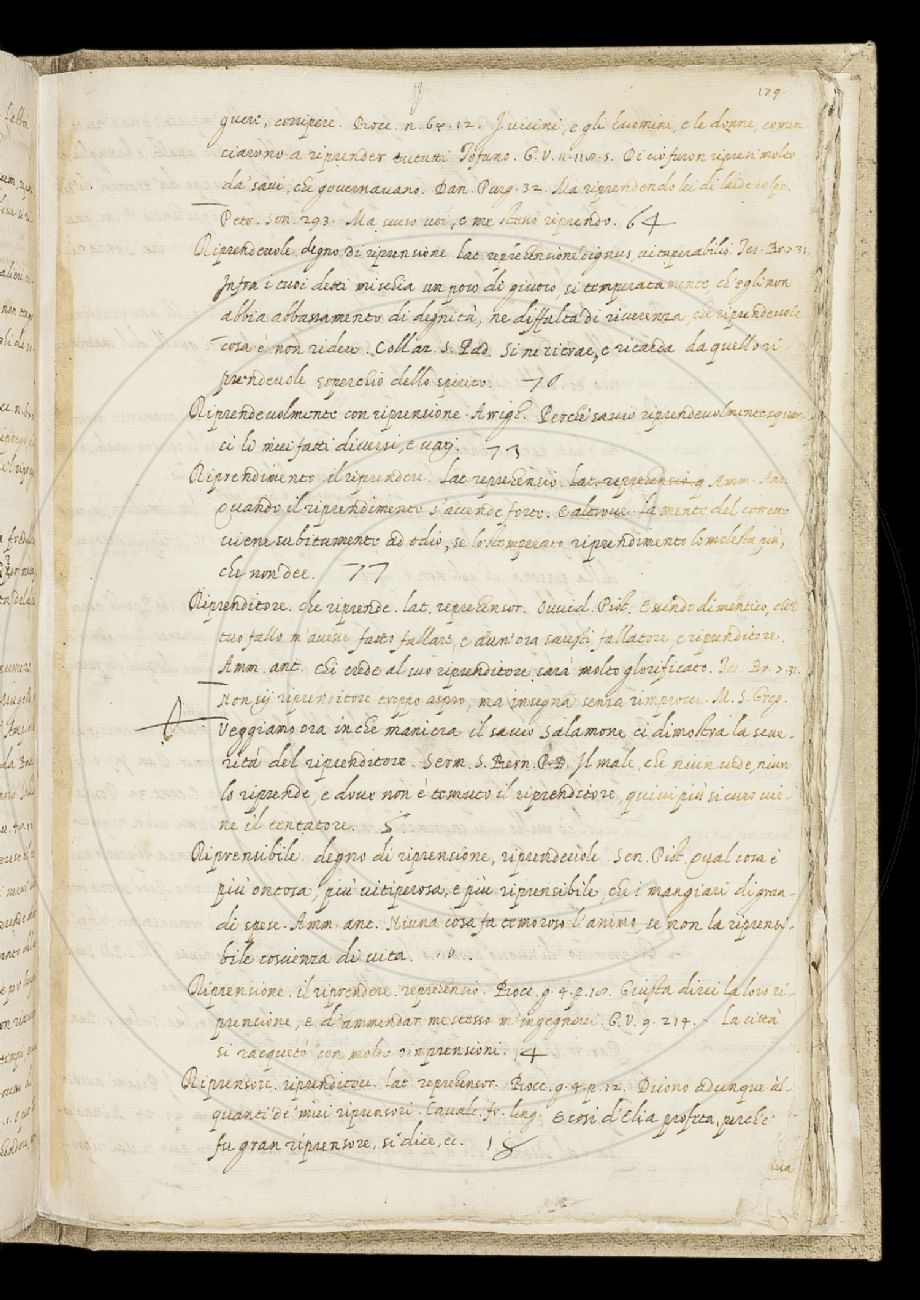 179.
guere, corripere. Bocc. n. 64. 12. I vicini, e gli huomini, e le donne, comin
ciarono a riprender tututti Tofano. G. V. 11. 118. 5. Di ciò furon ripresi molto
da' savi, che governavano. Dan. Purg. 32. Ma riprendendo lei di laide colpe.
Petr. Son. 293. Ma suso voi, e me stesso riprendo. 64
Riprendevole, degno di riprensione lat. reprehensione dignus vituperabilis. Tes. Br. 7. 31.
Infra i tuoi detti mischia un poco di giuoco, sì temperatamente, ch'egli non
abbia abbassamento di degnità, ne diffalta di riverenza, che riprendevole
cosa è non ridere. Collaz. S. Pad. Si ne ritrae, e ricalda da quello ri
prendevole soperchio dello spirito. 70
Riprendevolmente con riprensione. Arrigh. Perchè savio riprendevolmente squar
ci li miei fatti diversi, e varj. 73
Riprendimento, il riprendere. Lat. reprehensio. lat. reprehensio. g Amm. Ant.
Quando il riprendimento s'accende forte. E altrove. La mente del corretto
viene subitamente ad odio, se lo stemperato riprendimento lo molesta più,
che non dee. 77
Riprenditore. che riprende. lat. reprehensor. Ovvid. Pist. Essendo dimentico, che'l
tuo fallo m'avesse fatto fallare, e d'un'ora savesti fallatore, e riprenditore.
Amm. ant. chi crede al suo riprenditore sarà molto glorificato. Tes. Br. 7. 31.
Non sij riprenditore troppo aspro, ma insegna senza rimprocci. M. S. Greg.
Veggiamo ora in che maniera il savio Salamone ci dimostra la seve-
rità del riprenditore. Serm. S. Bern. P.D. Il male, che niun vede, niun
lo riprende, e dove non è temuto il riprenditore, quivi più sicuro vie-
ne il tentatore. 5
Riprensibile. degno di riprensione, riprendevole. Sen. Pist. Qual cosa è
più ontosa, più vitiperosa, e più riprensibile, che i mangiari di gran-
di spese. Amm. ant. Niuna cosa fa temoroso l'animo, se non la riprensi-
bile coscienza di vita.
Riprensione. il riprendere. reprehensio. Bocc. g. 4. p. 18. Giusta direi la loro ri-
prensione, e d'ammendar me stesso m'ingegnerei. G. V. 9. 214. La città
si racquetò con molte riprensioni. 4
Riprensore. riprenditore. Lat. reprehensor. Bocc. g. 4. p. 12. Dicono adunque al-
quanti de' miei riprensori. Cavalc. fr. ling. E così d'Elia profeta, perchè
fu gran riprensore, si dice, ec. 18